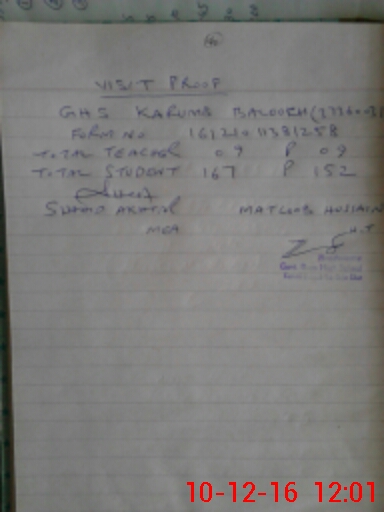 VISIT PROOF
GHS KARUMB BALOCH
FORM NO 16121011381258
TOTAL TEACHER 09 P 09
TOTAL STUDENT 167 P 152
MATLOOB HUSSAIN
MEA H.T
10-12-16 12:01